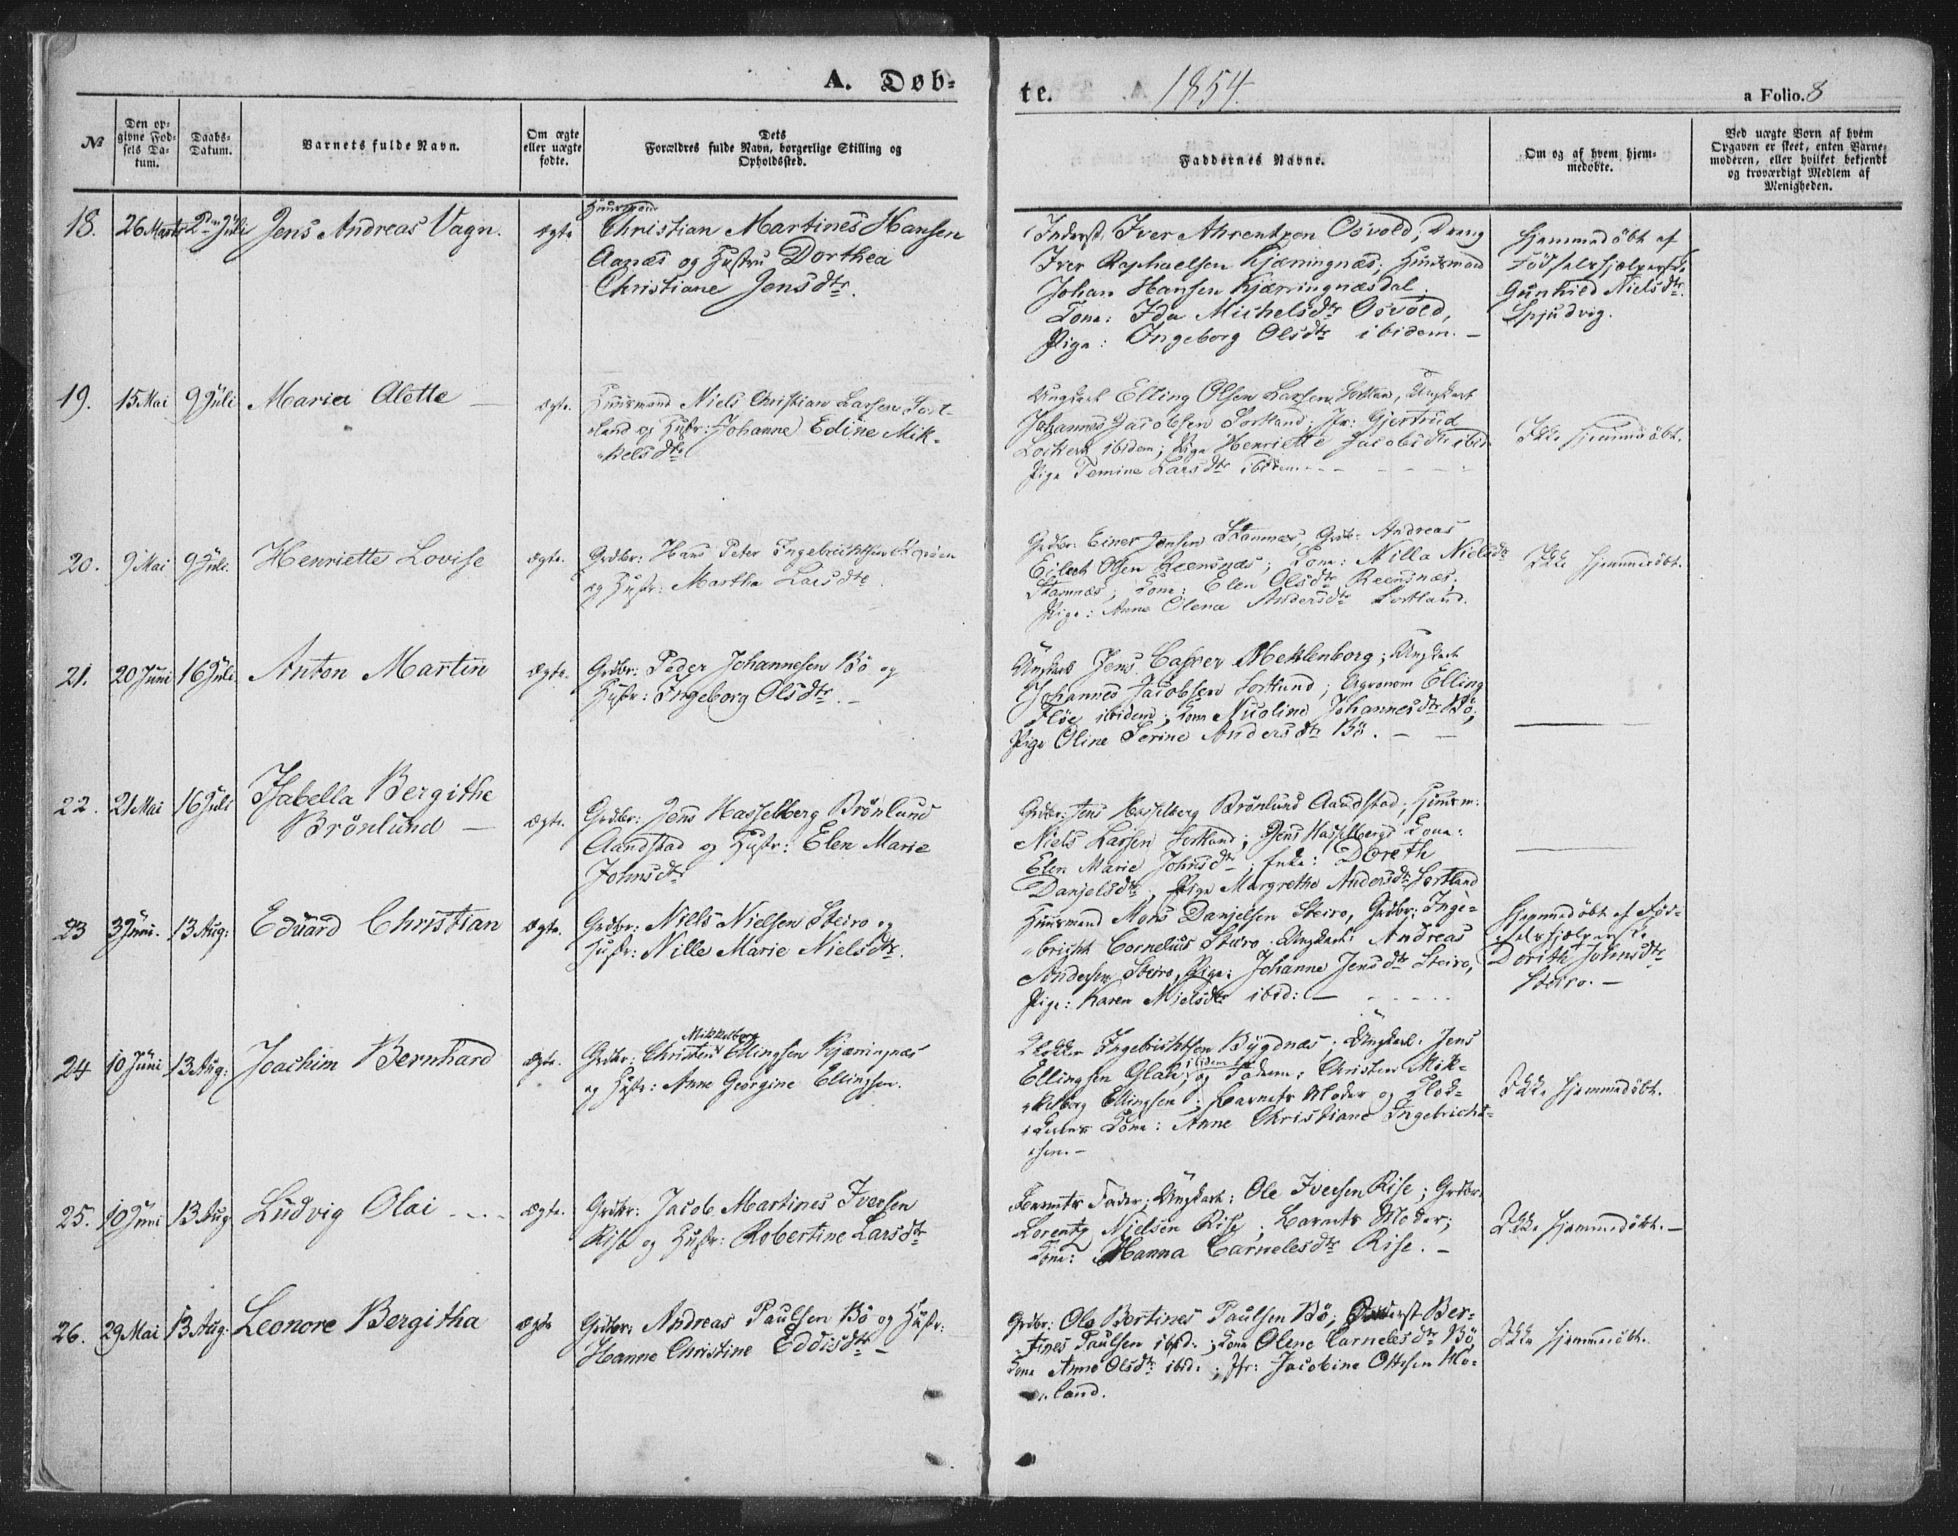 A. Døb-
te. 1854. a Folio. 8
№ Den opgivne Fødsels Datum. Daabs-Datum. Barnets fulde Navn. Om ægte eller uægte fødte. Dets Forældres fulde Navn, borgerlige Stilling og Opholdssted. Faddernes Navne. Om og af hvem hjemmedøbte. Ved uægte Børn af hvem Opgaven er skeet, enten Barnemoderen, eller hvilket bekjendt og troværdigt Medlem af Menigheden.
18. 26 Marts 2den Juli Jens Andreas Vagn. ægte
Huusmand
Christian Martines Hansen
Aanæs og Hustru Dorthea
Christiane Jensdtr.
Inderst. Iver Ahrentzen Osvold, Dreng
Iver Raphaelsen Kjæringnæs; Huusmand
Johan Hansen Kjærringnæsdal.
Kone: Ida Michelsdtr Osvold,
Pige: Ingeborg Olsdtr ibidem. -
Hjemmedøbt af
Fødselshjælperske
Gunhild Nielsdtr
Spjudvig.
19. 15 Mai 9 Juli Maria Alette - ægte.
Huusmand Niels Christian Larsen Sort-
land og Hustr: Johanne Edine Mik-
kelsdtr
Ungkarl Elling Olsen Larsen Sortland, Ungkarl
Johannes Jacobsen Sortland; Jfr: Gjertrud
Lockert ibidem; Pige Henriette Jacobsdtr ibid.
Pige Temine Larsdtr ibidem.
Ikke hjemmedøbt.
20. 9 Mai 9 Juli. Henriette Lovise ægte.
Grdbr: Hans Peter Ingebrichtsen
og Hustr: Martha Larsdtr.
Grdbr: Einer Jensen Stamnæs, Grdb: Andreas
Eilert Olsen Reensnæs; Kone: Nilla Nielsdtr
Stamnæs; Kone: Elen Olsdtr Reensnæs.
Pige: Anne Olena Andersdtr Sortland.
Ikke hjemmedøbt.
21. 20 Juni 16 Juli Anton Martin ægte.
Grdbr: Peder Johannesen Bö og
Hustr: Ingeborg Olsdtr. -
Ungkarl Jens Casper Mechlenborg; Ungkarl
Johannes Jacobsen Sortland; Agronom Elling
Fløe ibidem; Kone Nicoline Johannesdtr Bö;
Pige Oline Serine Andersdtr Bö. -
22. 21 Mai 16 Juli Isabella Bergithe
Brönlund - ægte.
Grdbr: Jens Hasselberg Brönlund
Aandstad og Hustr: Elen Marie
Johnsdtr
Grdbr: Jens Hasselberg Brönlund Aandstad; Huusm:
Niels Larsen Sortland; Jens Hasselbergs Kone:
Elen Marie Johnsdtr; Enke: Doreth
Danjelsdtr, Pige Margrethe Andersdtr Sortland
23 3 Juni. 13 Aug: Eduard Christian ægte.
Grdbr: Niels Nielsen Steiro og
Hustr: Nille Marie Nielsdtr.
Huusmand Mons Danjelsen Steiro, Grdbr: Inge-
bricht Cornelius Steiro. Ungkarl: Andreas
Andersen Steiro, Pige: Johanne Jensdtr Steiro,
Pige: Karen Nielsdtr ibid: -
Hjemmedøbt af Fød-
selshjælperske
Dorith Johnsdtr
Steiro. -
24 10 Juni 13 Aug: Joachim Bernhard ægte.
Mikkelborg
Grdbr: Christen Ellingsen Kjæringnæs
og Hustr: Anne Georgine Ellingsen.
Klokker Ingebrichtsen Bygdnæs; Ungkarl: Jens
Ellingsen Glah, ibidem og Faderen: Christen Mik-
kelborg Ellingsen; Barnets Moder og Klok-
kerens Kone: Anne Christiane Ingebricht-
sen. -
Ikke hjemmedøbt.
25. 10 Juni 13 Aug Ludvig Olai - ægte.
Grdbr: Jacob Martines Iversen
Rise og Hustr: Robertine Larsdtr
Barnets Fader; Ungkarl: Ole Iversen Rise; Grdbr.
Lorentz Nielsen Rise; Barnets Moder;
Kone: Hanna Carnelesdtr Rise. -
Ikke hjemmedøbt. -
26. 29 Mai 13 Aug: Leonore Bergitha ægte
Grdbr: Andreas Paulsen Bö og Hustr:
Hanne Christine Eddisdtr -
Grdbr: Ole Bertines Paulsen Bö; Inderst Ber-
tines Paulsen ibid.; Kone Olene Carnelesdtr Bö,
Kone Anne Olsdtr ibid.; Jfr: Jacobine Ottesen Ho-
land.
Ikke hjemmedøbt.